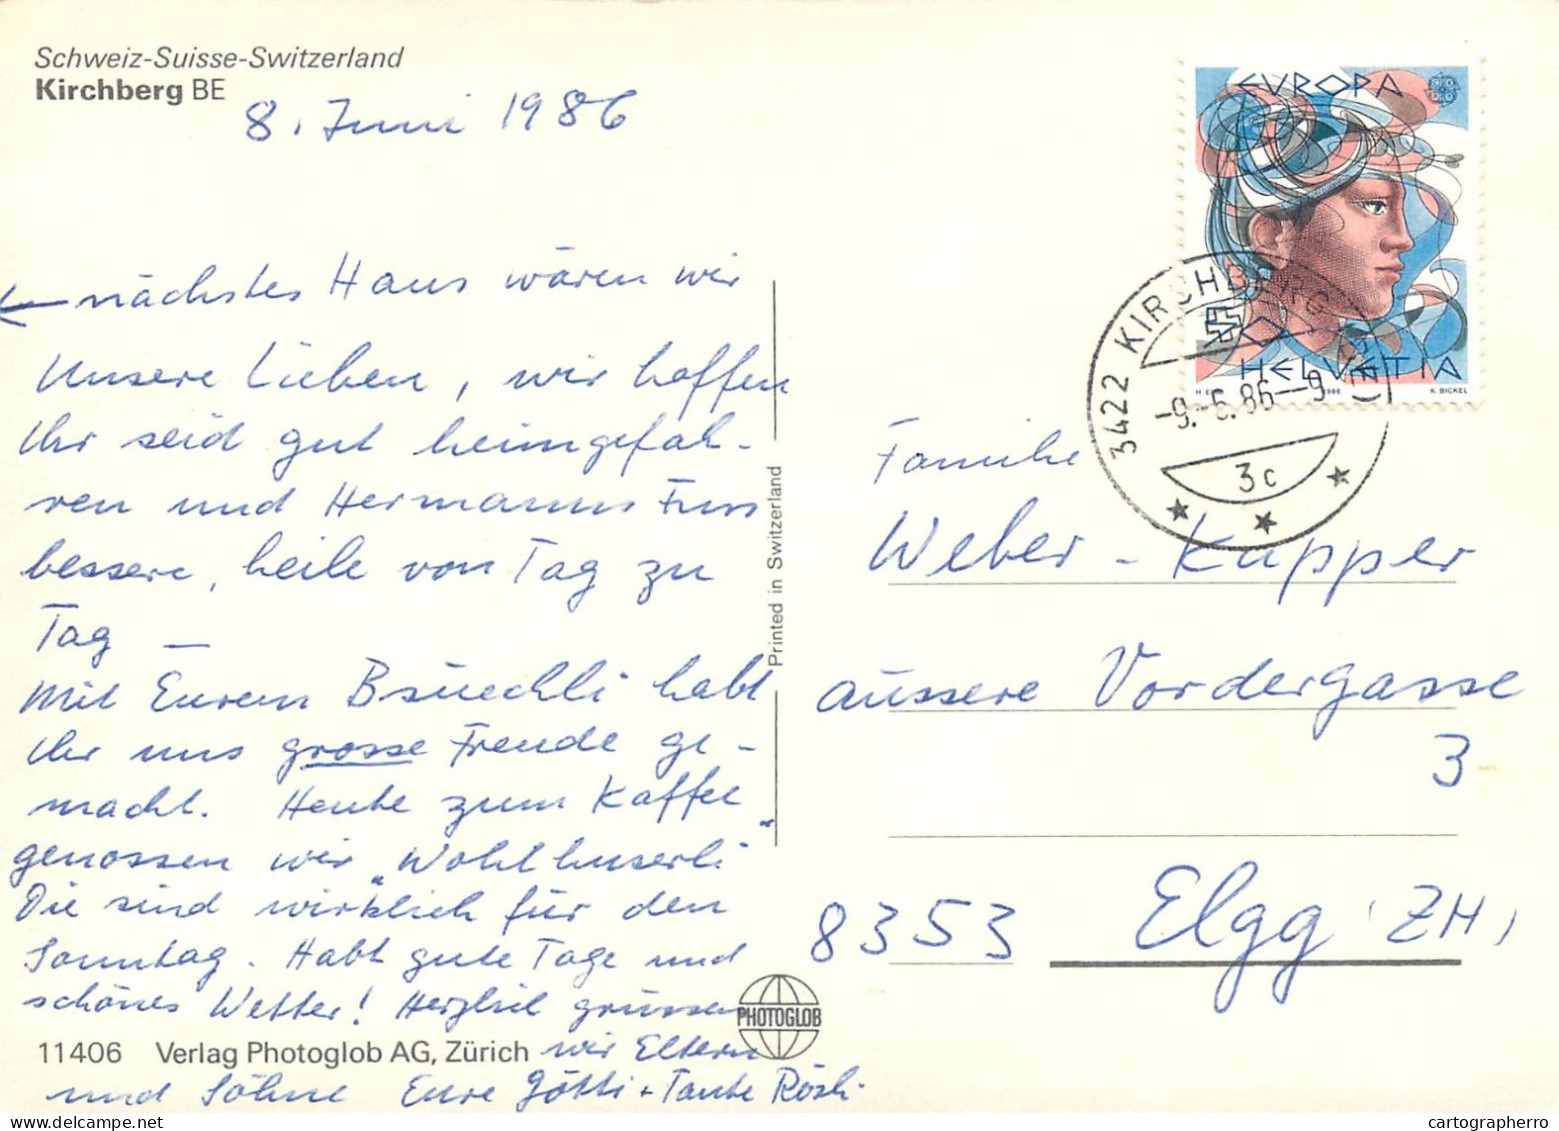 Schweiz-Suisse-Switzerland
Kirchberg BE
8. Juni 1986
← nächstes Haus wären wir
Unsere Lieben, wir hoffen
Ihr seid gut heimgefah-
ren und Hermanns Fuss
bessere, heile von Tag zu
Tag —
Mit Eurem Bsuechli habt
Ihr uns grosse Freude ge-
macht. Heute zum Kaffee
genossen wir „Wohlhuserli"
Die sind wirklich für den
Sonntag. Habt gute Tage und
schönes Wetter! Herzlich grüssen
wir Eltern
und Söhne Eure Götti + Tante Rösli
11406 Verlag Photoglob AG, Zürich
PHOTOGLOB
Printed in Switzerland
EVROPA
HELVETIA
K. BICKEL
3422 KIRCHBERG
-9.-6.86—9
3c
Familie
Weber - Kupper
äussere Vordergasse
3
8353 Elgg (ZH)
cartographerro